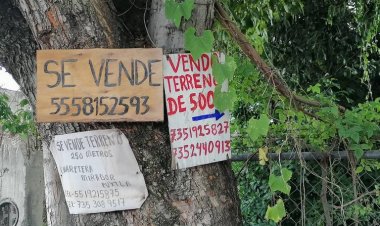 SE VENDE
5558152593
VENDO
TERRENO
DE 500
7351925827
7352440913
SE VENDE TERRENO
250 METROS
CARRETERA
MIRADOR
TEL. 5519215975